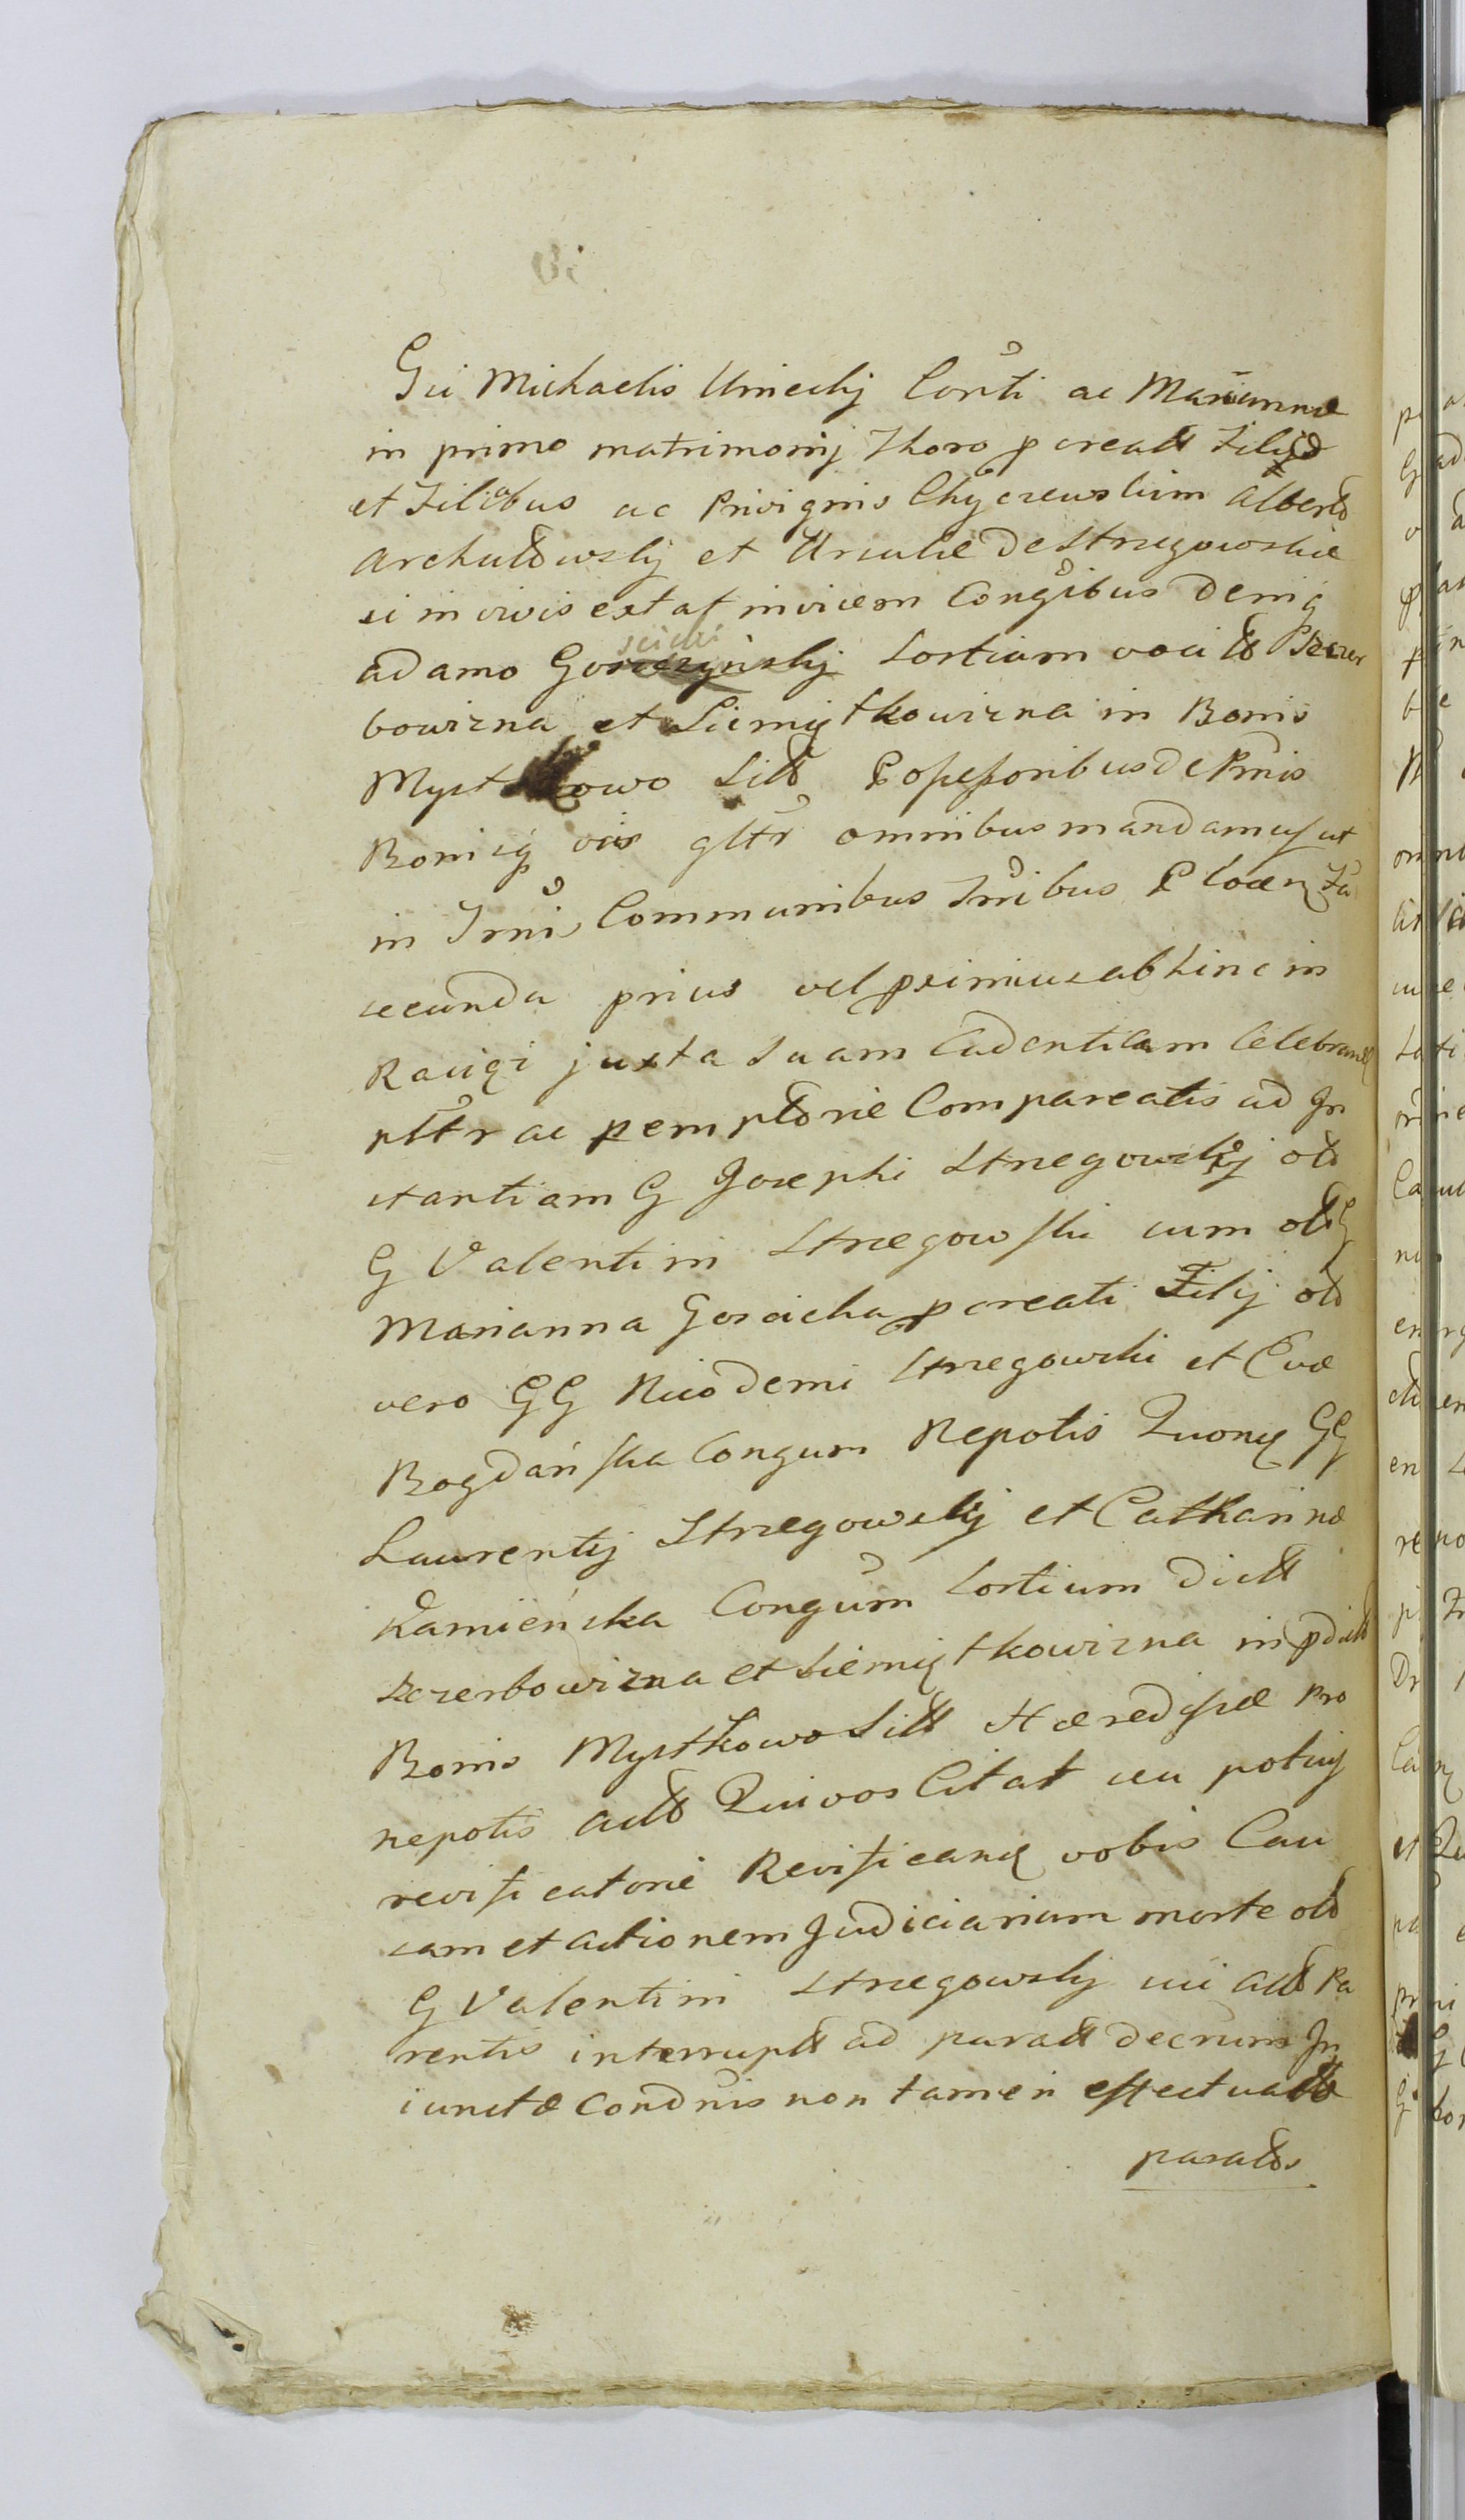 Gii Michaelis Uniechij Consti ac Mariannæ
in primo matrimonij Thoro pcreatt Filijs
et Filiabus ac Privignis Chyczewskim Alberto
Archutowskij et Ursulæ de Strzegowskie
si in vivis extat invicem Congibus Deniq
Adamo Goscicki Sortium vocitt Szczer
bowizna et Siemiątkowizna in Bonis
Mystkowo Sitt Possessoribus de Prnis
Bonisq vris gltr omnibus mandamus ut
in Jrnis Communibus Jrribus Plocen Fa
secunda prius vel primius abhinc in
Raciąż juxta suam Cadentiam Celebrandis
pltr ac pemptorie Compareatis ad In
stantiam G Josephi Strzegowskij olt
G Valentini Strzegowski cum olt G
Marianna Goscicka pcreati Filij olt
vero GG Nicodemi Strzegowski et Evæ
Bogdańska Congum Nepotis Quonq GG
Laurentij Strzegowskij et Catharinæ
Kamieńska Congum Sortium Dictt
Szczerbowizna et Siemiątkowizna in pdictt
Bonis Mystkowo Sitt Hæredisque Pro
nepotis actt Qui vos Citat seu potius
revisicatorie Revisicanq vobis Cau
sam et actionem Judiciariam morte olt
G Valentini Strzegowskij uii actt Pa
rentis interruptt ad paratt decrum In
iunctæ Condnis non tamen effectuatt
paratt